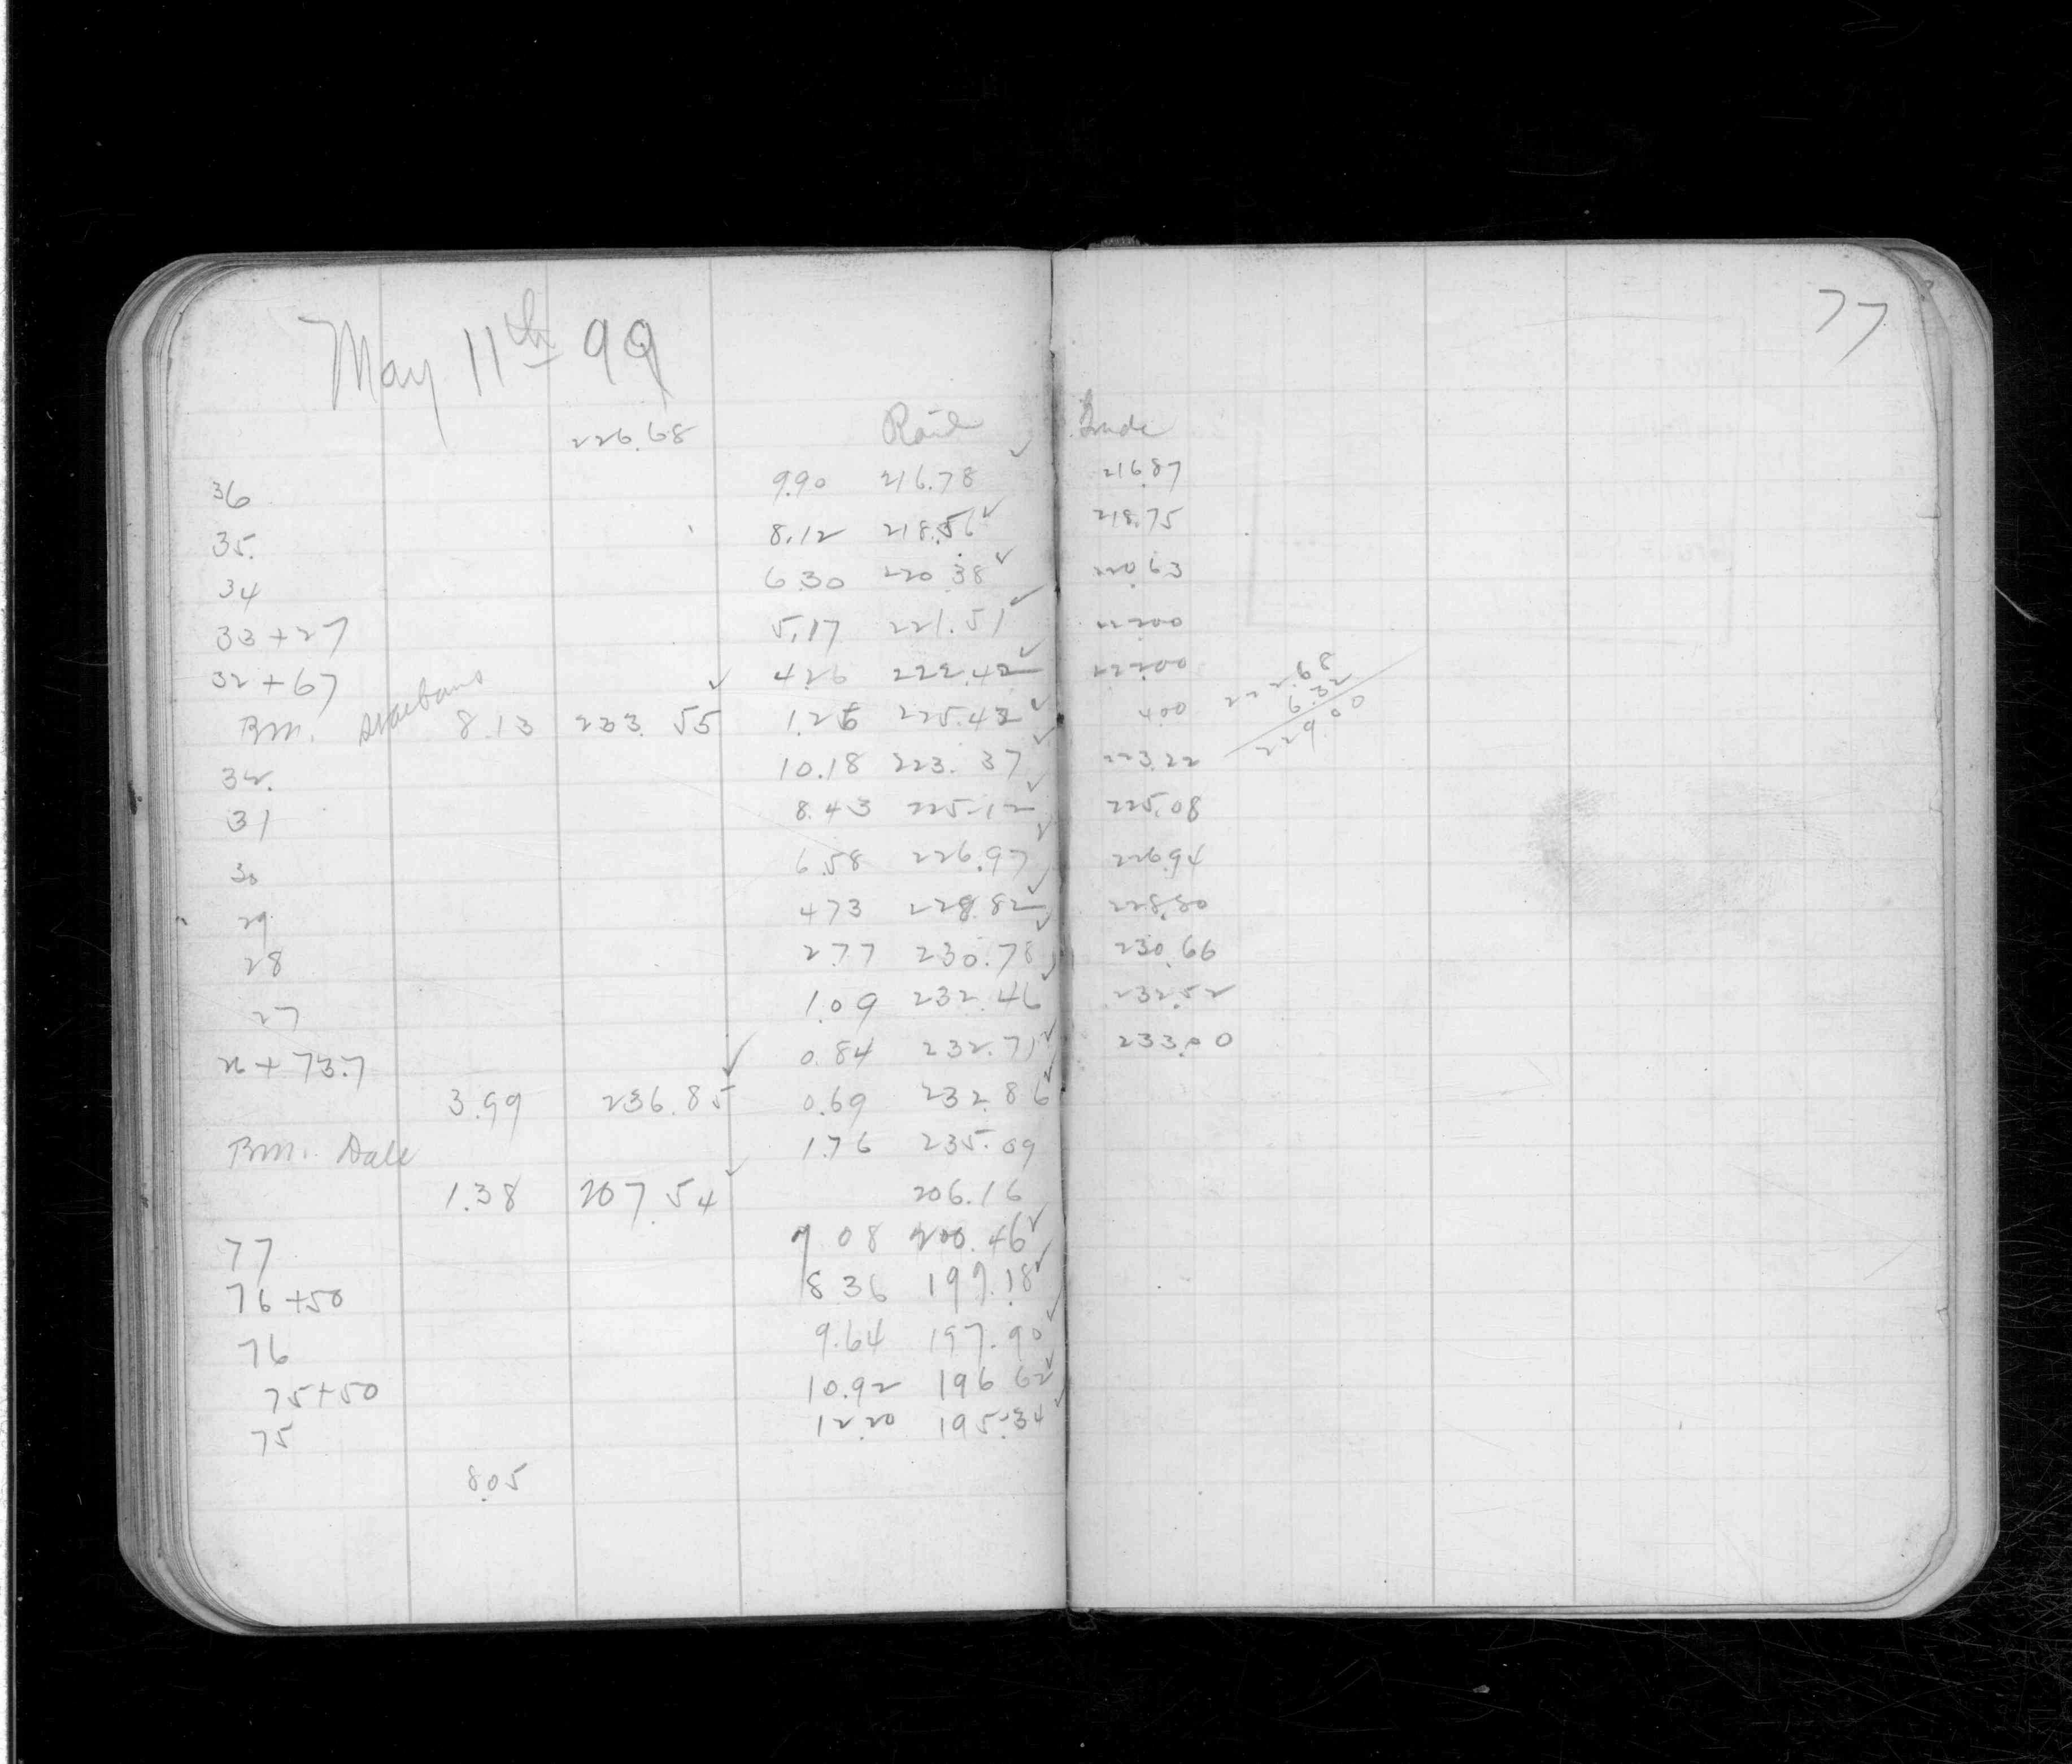 77
May 11th 99
226.68 Rail Grade
36 9.90 216.78 ✓ 216.87
35. 8.12 218.56 ✓ 218.75
34 6.30 220.38 ✓ 220.63
33+27 5.17 221.51 ✓ 222.00
32+67 4.26 222.42 ✓ 222.00
BM. 8.13 233.55 ✓ 1.26 225.42 ✓ 400
222.68
6.32
229.00
32. 10.18 223.37 ✓ 223.22
31 8.43 225.12 ✓ 225.08
30 6.58 226.97 ✓ 226.94
29 4.73 228.82 ✓ 228.80
28 2.77 230.78 ✓ 230.66
27 1.09 232.46 ✓ 232.52
26+73.7 0.84 232.71 ✓ 233.00
3.99 236.85 ✓ 0.69 232.86 ✓
BM. Dale 1.76 235.09
1.38 207.54 ✓ 206.16
77 7 08 200.46 ✓
76+50 8 36 199.18 ✓
76 9.64 197.90 ✓
75+50 10.92 196 62 ✓
75 12.20 195.34 ✓
8.05